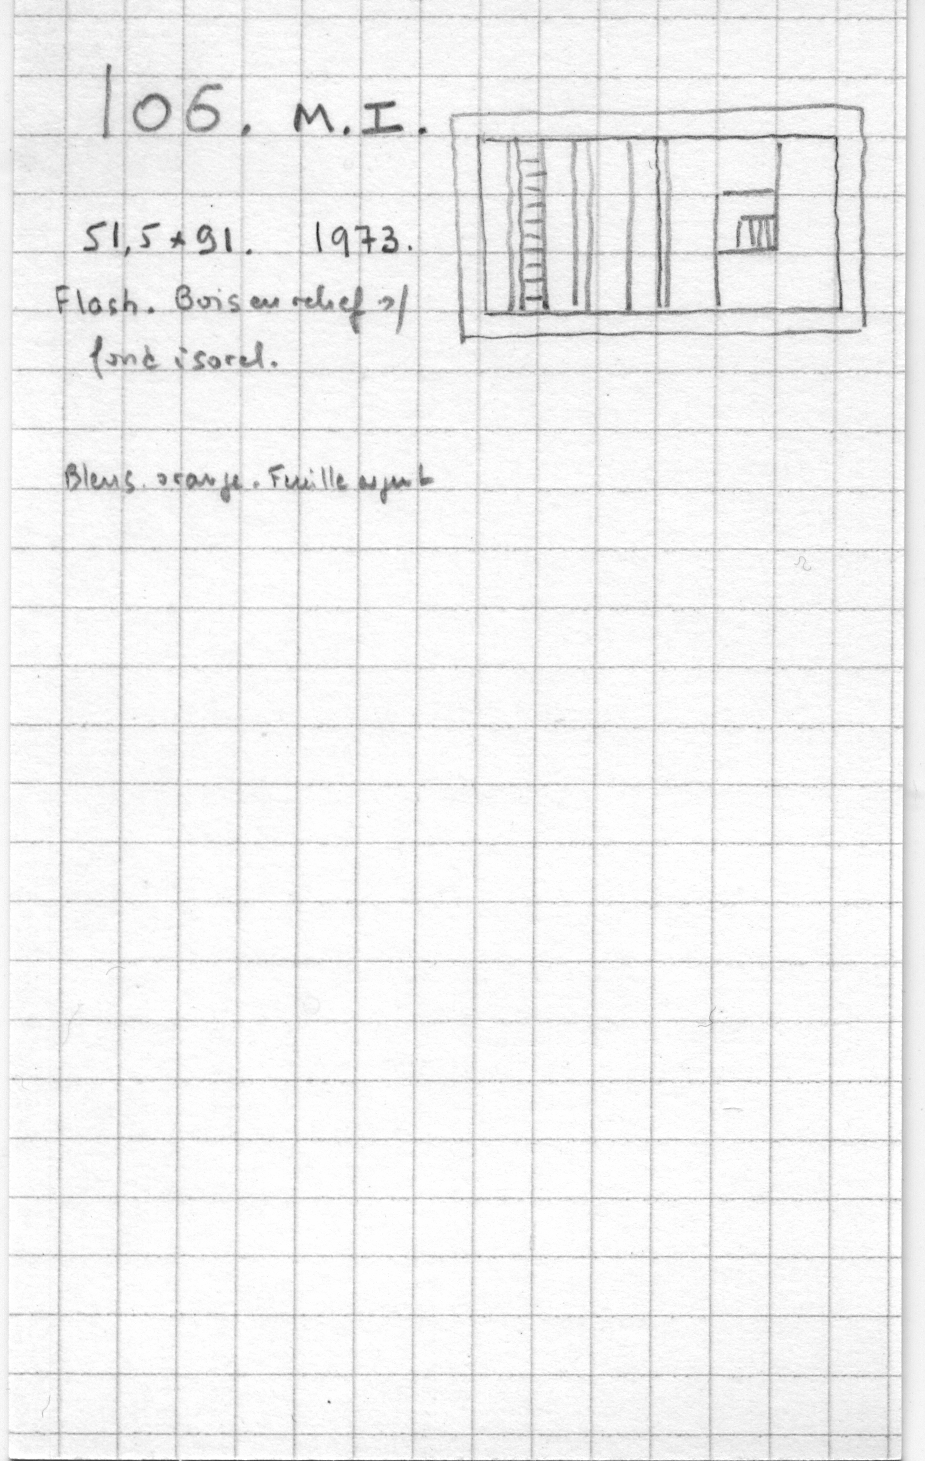 106. M.I.
51,5 x 91. 1973.
Flash. Bois en relief s/
fond isorel.
Bleus. orange. Feuille argent